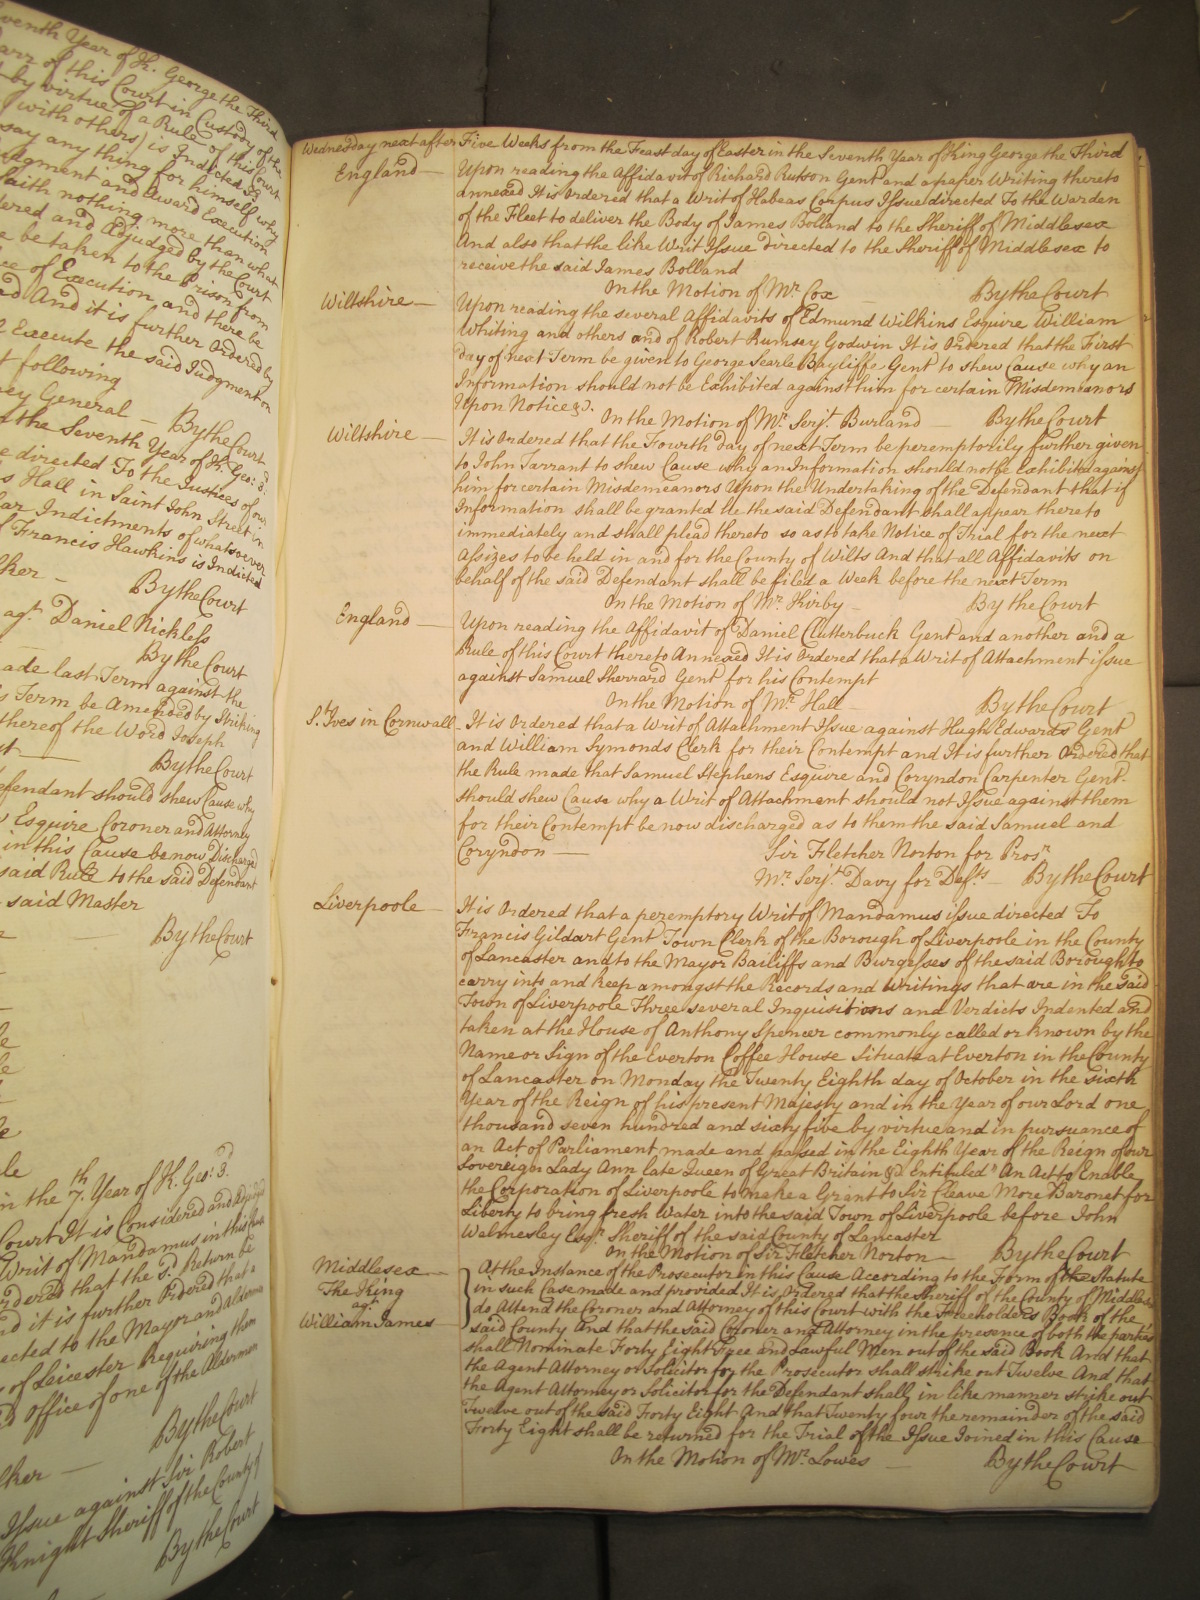 eventh Year of K. George the Third
of this Court in Custody of the
by virtue of a Rule of this Court
(with others) is Indicted
say any thing for himself why
udgment and Award Execution
saith nothing more than what
dered and Adjudged by the Court
be taken to the Prison from
ce of Execution and there be
And it is further Ordered by
Execute the said Judgment on
t following
ney General — By the Court
f the Seventh Year of K. Geo: 3d:
e directed To the Justices of our
s Hall in Saint John Street in
lar Indictments of whatsoever
f Francis Hawkins is Indicted
lker — By the Court
agt. Daniel Nickless
By the Court
ade last Term against the
s Term be Amended by Striking
thereof the Word Joseph
By the Court
efendant should shew Cause why
Esquire Coroner and Attorney
in this Cause be now Discharged
said Rule to the said Defendant
said Master
By the Court
in the 7th. Year of K. Geo: 3d.
Court It is Considered and
Writ of Mandamus in this
rdered that the sd. Return be
nd it is further Ordered that a
ected to the Mayor and Alderm
of Leicester Requiring them
office of one of the Aldermen
By the Court
lker —
Issue against Sir Robert
Knight Sheriff of the County of
By the Court
Wednesday next after Five Weeks from the Feast day of Easter in the Seventh Year of King George the Third
England — Upon reading the Affidavit of Richard Rutson Gent and a paper Writing thereto
annexed It is Ordered that a Writ of Habeas Corpus Issue directed To the Warden
of the Fleet to deliver the Body of James Bolland to the Sheriff of Middlesex
And also that the like Writ Issue directed to the Sheriff of Middlesex to
receive the said James Bolland
On the Motion of Mr. Cox By the Court
Wiltshire — Upon reading the several Affidavits of Edmund Wilkins Esquire William
Whiting and others and of Robert Rumsey Godwin It is Ordered that the First
day of next Term be given to George Searle Bayliffe Gent to shew Cause why an
Information should not be Exhibited against him for certain Misdemeanors
Upon Notice &c.
On the Motion of Mr. Serjt. Burland — By the Court
Wiltshire — It is Ordered that the Fourth day of next Term be peremptorily further given
to John Tarrant to shew Cause why an Information should not be Exhibited against
him for certain Misdemeanors Upon the Undertaking of the Defendant that if
Information shall be granted He the said Defendant shall appear thereto
immediately and shall plead thereto so as to take Notice of Trial for the next
Assizes to be held in and for the County of Wilts And that all Affidavits on
behalf of the said Defendant shall be filed a Week before the next Term
On the Motion of Mr. Kirby — By the Court
England — Upon reading the Affidavit of Daniel Clutterbuck Gent and another and a
Rule of this Court thereto Annexed It is Ordered that a Writ of Attachment issue
against Samuel Sherrard Gent for his Contempt
On the Motion of Mr. Hall — By the Court
St. Ives in Cornwall — It is Ordered that a Writ of Attachment Issue against Hugh Edwards Gent
and William Symonds Clerk for their Contempt and It is further Ordered that
the Rule made that Samuel Stephens Esquire and Coryndon Carpenter Gent.
should shew Cause why a Writ of Attachment should not Issue against them
for their Contempt be now discharged as to them the said Samuel and
Coryndon — Sir Fletcher Norton for Prosr
Mr. Serjt. Davy for Defts. — By the Court
Liverpoole — It is Ordered that a peremptory Writ of Mandamus issue directed To
Francis Gildart Gent Town Clerk of the Borough of Liverpoole in the County
of Lancaster and to the Mayor Bailiffs and Burgesses of the said Borough to
carry into and keep amongst the Records and Writings that are in the said
Town of Liverpoole Three several Inquisitions and Verdicts Indented and
taken at the House of Anthony Spencer commonly called or known by the
Name or Sign of the Everton Coffee House Situate at Everton in the County
of Lancaster on Monday the Twenty Eighth day of October in the sixth
Year of the Reign of his present Majesty and in the Year of our Lord one
thousand seven hundred and sixty five by virtue and in pursuance of
an Act of Parliament made and passed in the Eighth Year of the Reign of our
Sovereign Lady Ann late Queen of Great Britain &c. Entituled "An Act to Enable
the Corporation of Liverpoole to make a Grant to Sir Cleave More Baronet for
Liberty to bring fresh Water into the said Town of Liverpoole before John
Walmesley Esqr. Sheriff of the said County of Lancaster
On the Motion of Sir Fletcher Norton — By the Court
Middlesex — At the Instance of the Prosecutor in this Cause According to the Form of the Statute
The King in such Case made and provided It is Ordered that the Sheriff of the County of Middlesex
agt. do Attend the Coroner and Attorney of this Court with the Freeholders Book of the
William James — said County And that the said Coroner and Attorney in the presence of both the parties
shall Nominate Forty Eight Free and Lawful Men out of the said Book And that
the Agent Attorney or Solicitor for the Prosecutor shall strike out Twelve And that
the Agent Attorney or Solicitor for the Defendant shall in like manner strike out
Twelve out of the said Forty Eight And that Twenty four the remainder of the said
Forty Eight shall be returned for the Trial of the Issue Joined in this Cause
On the Motion of Mr. Lowes — By the Court